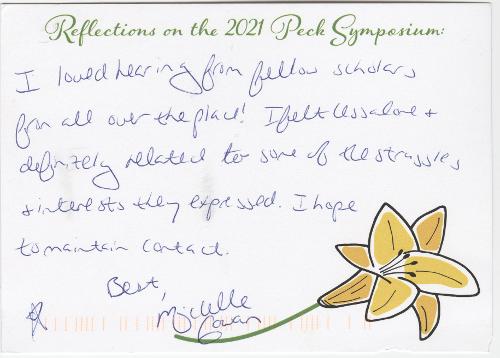 Reflections on the 2021 Peck Symposium:
I loved hearing from fellow scholars
from all over the place! I felt less alone +
definitely related to some of the struggles
+ interests they expressed. I hope
to maintain contact.
Best,
Michelle
Cowan